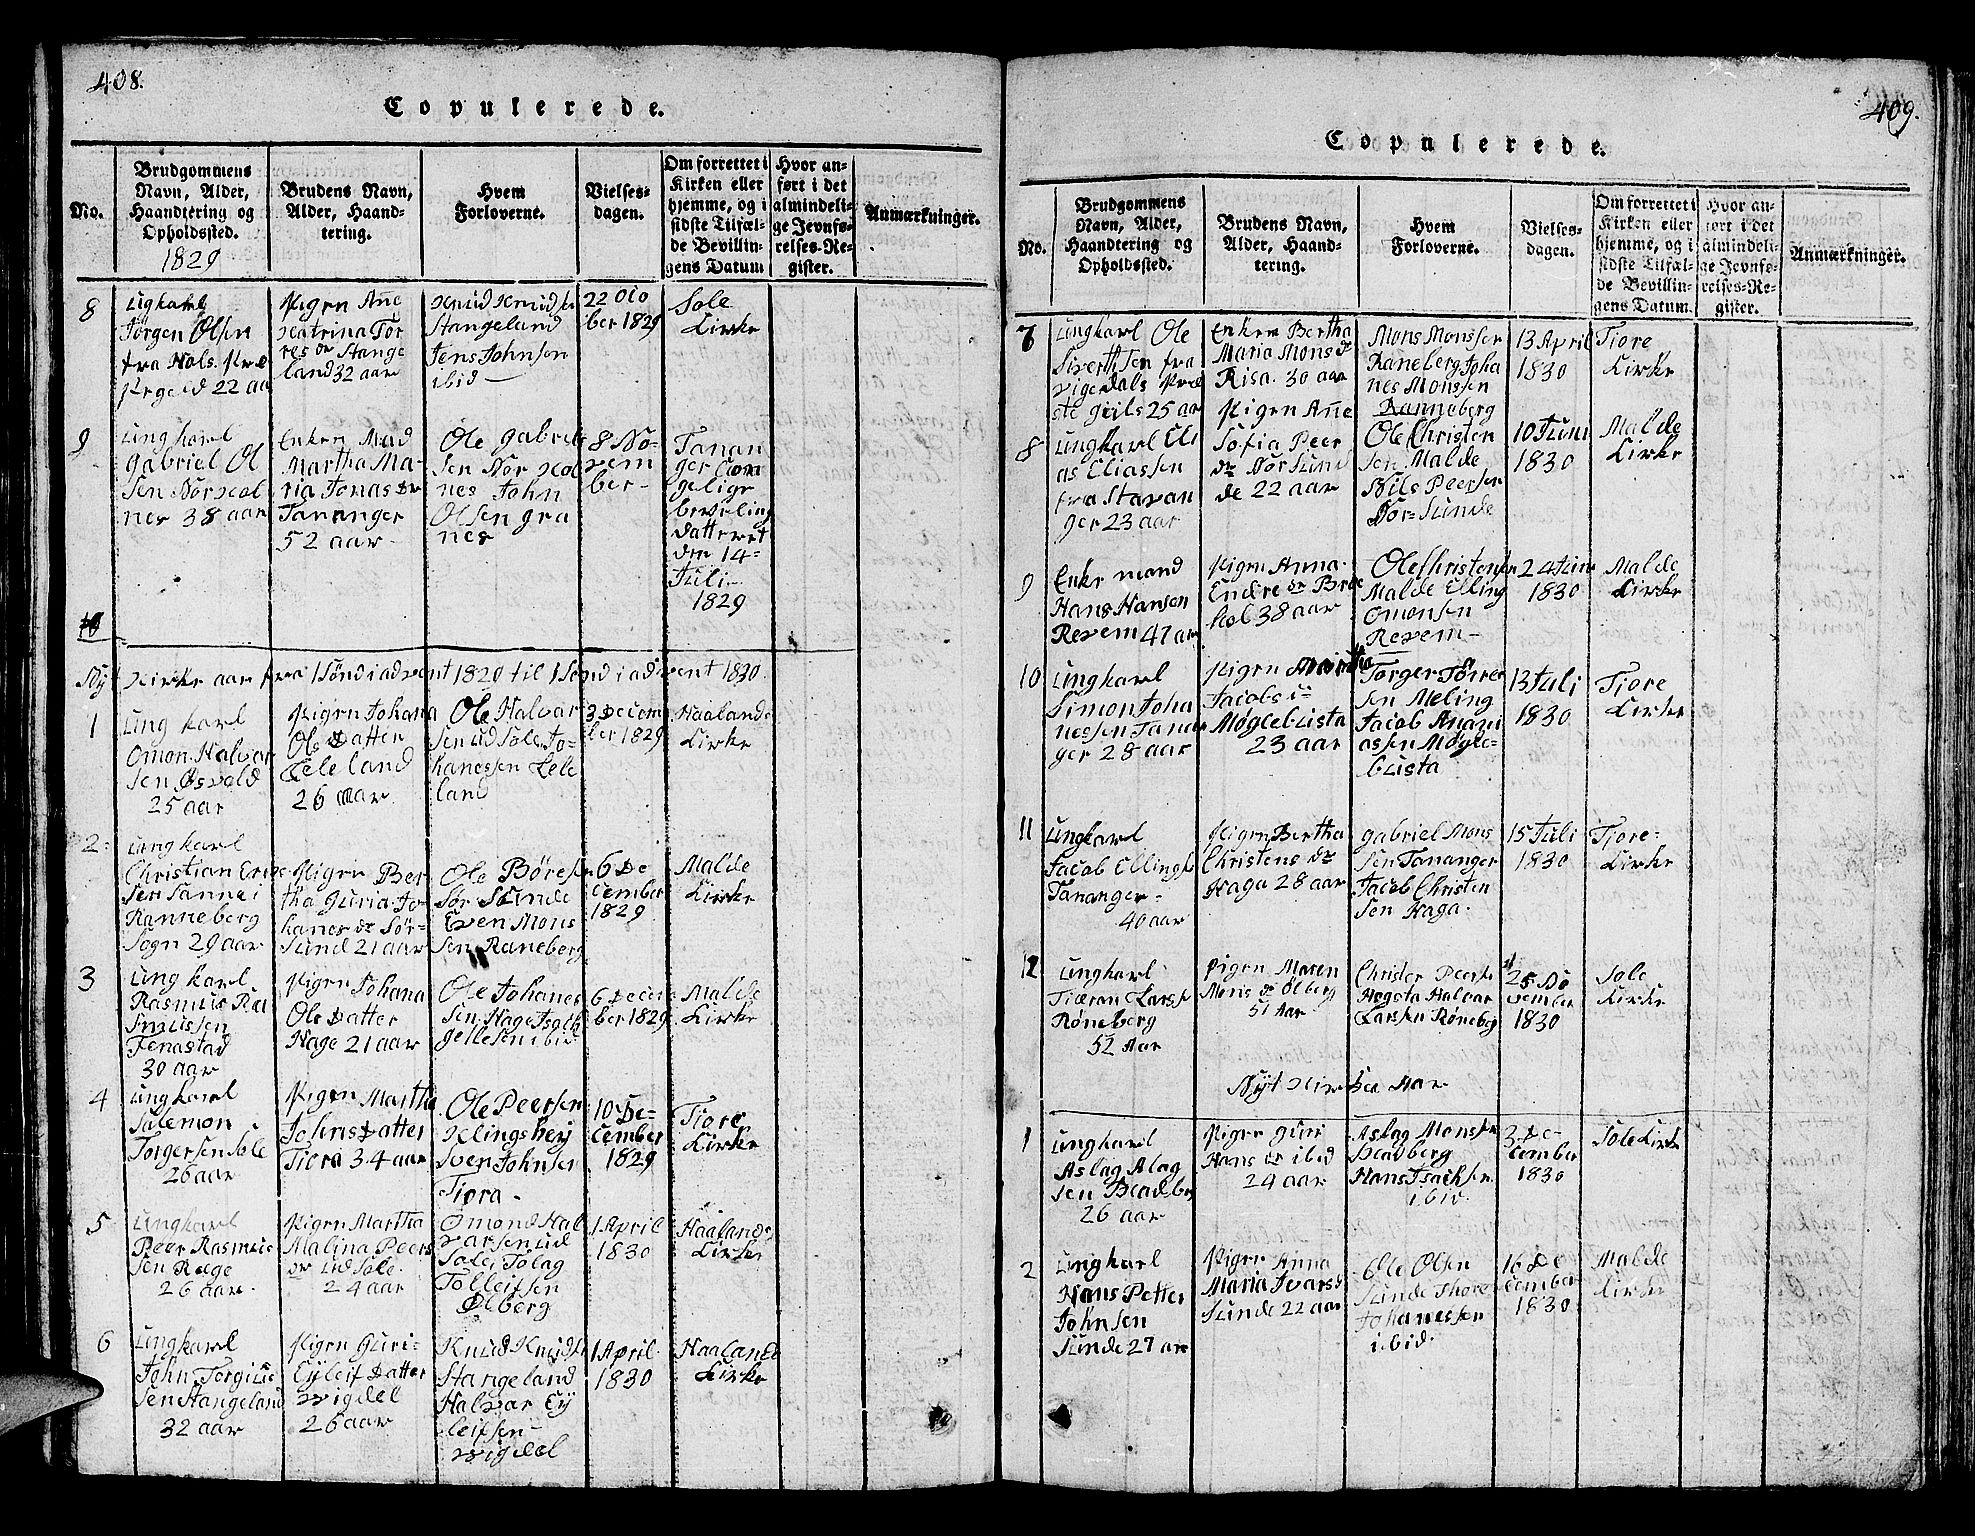 408.
Copulerede.
No.
Brudgommens
Navn, Alder,
Haandtering og
Opholdssted.
1829
Brudens Navn,
Alder, Haand-
tering.
Hvem
Forloverne.
Vielses-
dagen.
Om forrettet i
Kirken eller
hjemme, og i
sidste Tilfæl-
de Bevillin-
gens Datum
Hvor an-
ført i det
almindeli-
ge Jevnfø-
relses-Re-
gister.
Anmærkninger.
8
Ungkarl
Jørgen Olsen
fra Hols. Præ
22 aar
Pigen Ane
Katrina Tor
res dr Stange
land 32 aar
Knud Knudse
Stangeland
Jens Johnsen
ibid
22 Oto
ber 1829
Sole
Kirke
9
Ungkarl
Gabriel Ol
sen Nør Kol
nes 38 aar
Enken Mad
Martha Ma-
ria Jonas dr
Tananger
52 aar
Ole Gabriels
sen Nør Kol
nes John
Olsen Gra
nes
8 No-
vem
ber
Tanan
ger
gelige
beveling
datteret
den 14
Juli
1829
10
Nyt Kirke aar fra 1 Sønd i advent 1820 til 1 Sønd i advent 1830
1
Ung karl
Omon Halvar
sen Øsvold
25 aar
Pigen Johana
Ols Datter
Leleland
26 aar
Ole Halvar
sen Ud Sole Jo-
hanessen Lele
land
3 Decem
ber 1829
Haalands
Kirke
2
Ungkarl
Christian Erik
sen Sanne i
Ranneberg
Sogn 29 aar
Pigen Ber
tha Guria Jo
hanes dr Sør-
Sund 21 aar
Ole Børese
Sør Sunde
Even Mons
sen Raneberg
6 De
cember
1829
Malde
Kirke
3
Ung karl
Rasmus Ra
smussen
Jenastad
30 aar
Pigen Johana
Ols Datter
Hage 21 aar
Ole Johanes
sen Hage
6 Decem
ber 1829
Malde
Kirke
4
Ungkarl
Salemon
Torgersen Sole
26 aar
Pigen Martha
Johns Datter
Tiora 34 aar
Ole Peersen
Klingshey
Sven Johnsen
Tiora
10 De-
cember
1829
Tiore
Kirke
5
Ungkarl
Peer Rasmus
sen Ræge
26 aar
Pigen Martha
Malina Peers
dr Ud Sole
24 aar
Omond Hal
varsen Ud
Sole Tolag
Tolleifsen
Ølberg
1 April
1830
Haalands
Kirke
6
Ungkarl
John Torgius
sen Stangeland
32 aar
Pigen Guri
Eyleif Datter
Vigdel
26 aar
Knud Knudse
Stangeland
Halvar Ey
leifsen
Vigdel
1 April
1830
Haalands
Kirke
409.
Copulerede.
No.
Brudgommens
Navn, Alder,
Haandtering og
Opholdssted.
Brudens Navn,
Alder, Haand-
tering.
Hvem
Forloverne.
Vielses-
dagen.
Om forrettet i
Kirken eller
hjemme, og i
sidste Tilfæl-
de Bevillin-
gens Datum.
Hvor an-
ført i det
almindeli-
ge Jevnfø-
relses-Re-
gister.
Anmærkninger.
7
Ungkarl Ole
Siverthsen fra
Vigedals Præ
ste giils 25 aar
Enken Bertha
Maria Mons dr
Risa. 30 aar
Mons Monssen
Raneberg Joha
nes Monssen
Ranneberg
13 April
1830
Tiore
Kirke
8
Ungkarl Eli
as Eliassen
fra Stavan
ger 23 aar
Pigen Ane
Sofia Peer
dr Nør Sund
de 22 aar
Ole Christen
sen Malde
Nils Peersen
Nør-Sunde
10 Juni
1830
Malde
Kirke
9
Enke mand
Hans Hansen
Revem 47 aar
Pigen Anna
Endre dr Bræ
hol 38 aar
Ole Christensen
Malde Elling
Omonsen
Revem
24 Juni
1830
Malde
Kirke
10
Ungkarl
Simon Joha
nessen Tanan
ger 28 aar
Pigen Martha
Jacobs
Møglebusta
23 aar
Torger Torre
sen Meling
Jacob Anani
assen Møgle-
busta
13 Juli
1830
Tiore
Kirke
11
Ungkarl
Jacob Ellings
Tananger
40 aar
Pigen Bertha
Christens dr
Haga 28 aar
Gabriel Mons
sen Tananger
Jacob Christen
sen Haga.
15 Juli
1830
Tiore
Kirke
12
Ungkarl
Tiæran Larss
Røneberg
52 Aar
Pigen Maren
Mons dr Ølberg
51 Aar
Christen Peerse
Hogsta Halvar
Larsen Røneberg
25 No
vember
1830
Sole
Kirke
Nÿt Kirkea Aar
1
Ungkarl
Aslag Alag
sen
26 aar
Pigen Guri
Hans dr ibid
24 aar
Aslag Monsse
Hans Isachse
ibid.
3 De-
cember
1830
Sole Kirke
2
Ungkarl
Hans Petter
Johnsen
Sunde 27 aar
Pigen Anna
Maria Ivarsd
Sunde 22 aar
Ole Olsen
Sunde Thore
Johanessen
ibid.
16 De
cember
1830
Malde
Kirke